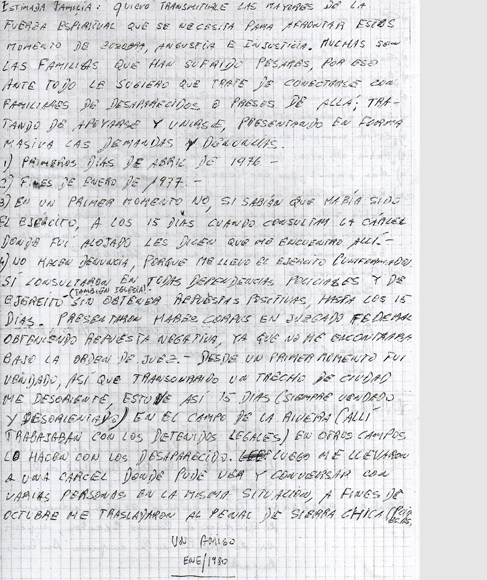 ESTIMADA FAMILIA: QUIERO TRANSMITIRLE LAS MAYORES DE LA
FUERZA ESPIRITUAL QUE SE NECESITA PARA AFRONTAR ESTOS
MOMENTO DE ZOZOBRA, ANGUSTIA E INJUSTICIA. MUCHAS SON
LAS FAMILIAS QUE HAN SUFRIDO PESARES, POR ESO
ANTE TODO LE SUGIERO QUE TRATE DE CONECTARSE CON
FAMILIARES DE DESAPARECIDOS O PRESOS DE ALLA; TRA-
TANDO DE APOYARSE Y UNIRSE, PRESENTANDO EN FORMA
MASIVA LAS DEMANDAS Y DENUNCIAS.
1) PRIMEROS DÍAS DE ABRIL DE 1976-
2) FINES DE ENERO DE 1977.-
3) EN UN PRIMER MOMENTO NO, SI SABÍAN QUE HABÍA SIDO
EL EJERCITO, A LOS 15 DÍAS CUANDO CONSULTAN LA CÁRCEL
DONDE FUI ALOJADO LES DICEN QUE ME ENCUENTRO ALLÍ-
4) NO HACEN DENUNCIA, PORQUE ME LLEVO EL EJERCITO
SÍ CONSULTARON EN TODAS DEPENDENCIAS POLICIALES Y DE
EJERCITO (TAMBIÉN IGLESIA) SIN OBTENER REPUESTAS POSITIVAS, HASTA LOS 15
DÍAS. PRESENTARON HABES CORPUS EN JUZGADO FEDERAL
OBTENIENDO REPUESTA NEGATIVA, YA QUE NO ME ENCONTRABA
BAJO LA ORDEN DE JUEZ.- DESDE UN PRIMER MOMENTO FUI
VENDADO, ASÍ QUE TRANSCURRIDO UN TRECHO DE CIUDAD
ME DESORIENTE, ESTUVE ASÍ 15 DÍAS (SIEMPRE VENDADO
Y DESORIENTADO) EN EL CAMPO DE LA RIVERA (ALLÍ
TRABAJABAN CON LOS DETENIDOS LEGALES) EN OTROS CAMPOS
LO HACEN CON LOS DESAPARECIDO. LUEGO ME LLEVARON
A UNA CARCEL DONDE PUDE VER Y CONVERSAR CON
VARIAS PERSONAS EN LA MISMA SITUACION, A FINES DE
OCTUBRE ME TRASLADARON AL PENAL DE SIERRA CHICA
UN AMIGO
ENE/1980